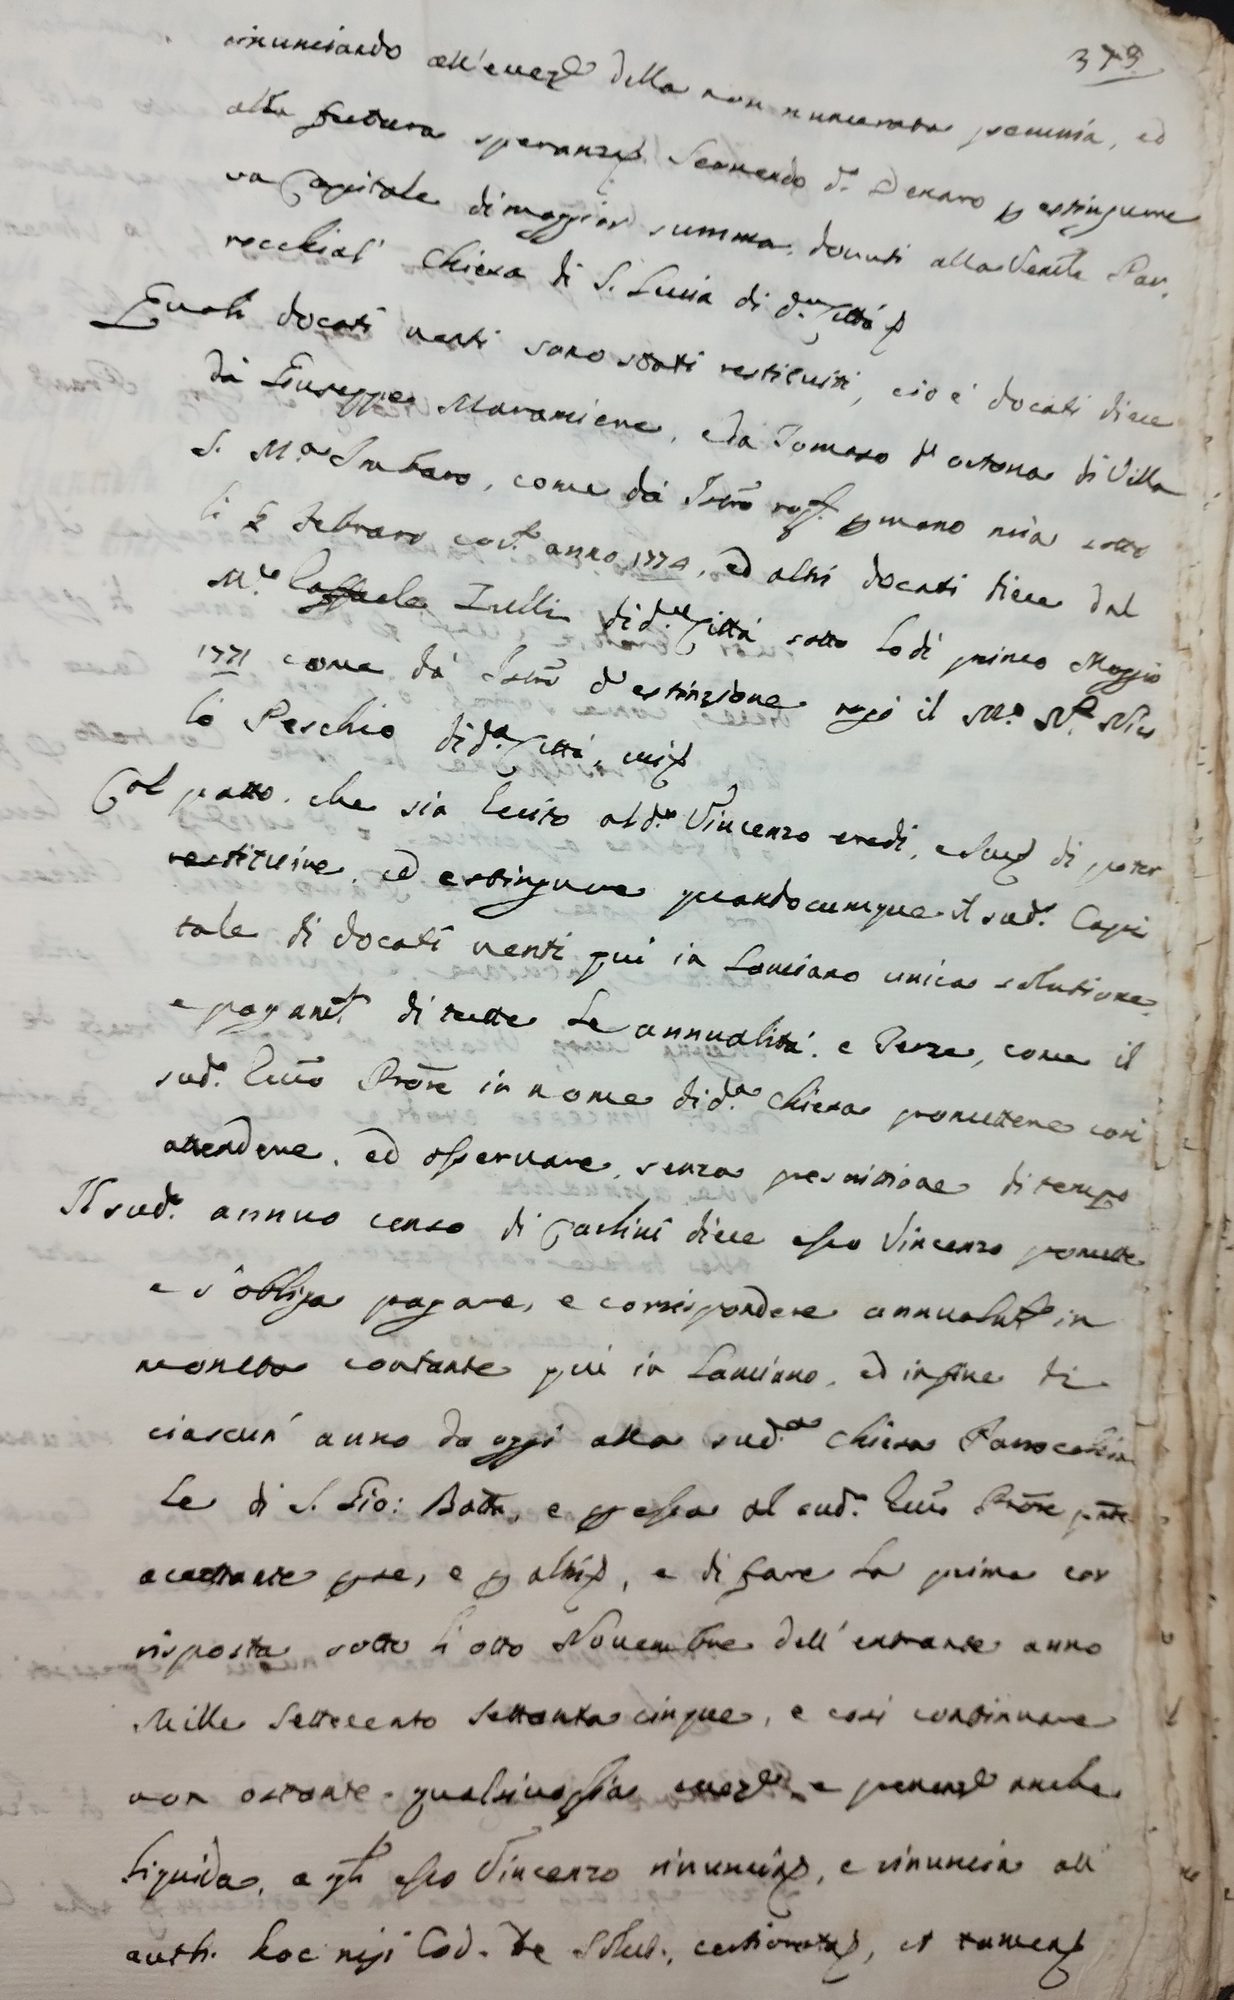 379
rinunciando all'eccez.e della non numerata pecunia, ed
alla futura speranza Servendo d.o Denaro p estinguere
un Capitale di maggior summa, dovuti alla Ven.le Par.
rocchial' Chiesa di S. Lucia di d.a Città
Quali docati venti sono stati restituiti, cioè docati diece
da Giuseppe Maramiere, e da Tomaso d'ortona di Villa
S. M.a Imbaro, come da Istro rog. p mano mia sotto
li Febraro cor.te anno 1774, ed altri docati diece dal
M.co Raffaele Lulli di d.a Città sotto Lo dì primo Maggio
1771 come da Istro d'estinzione rog.o il M.o N.r Nic
lò Peschio di d.a Città,
Col patto, che sia lecito al d.o Vincenzo eredi, e suc di poter
restituire, ed estinguere quandocumque il sud.o Capi
tale di docati venti qui in Lanciano unica solutione
e pagam.to di tutte Le annualità, e Terze, come il
sud.o Procre in nome di d.a Chiesa promettere così
attendere, ed osservare, senza prescrizione di tempo
Il sud.o annuo censo di Carlini diece esso Vincenzo promette
e s'obliga pagare, e corrispondere annualm.te in
moneta contante qui in Lanciano, ed in fine di
ciascun' anno da oggi alla sud.a Chiesa Parrocchia
Le di S. Gio: Batta, e p essa al sud.o Procre pnte
accettante pse, e p altri, e di fare La prima cor
risposta sotto li otto Novembre dell' entrante anno
Mille Settecento settanta cinque, e così continuare
non ostante qualsivoglia eccez.e e prevenz.e anche
Liquida, a q.li esso Vincenzo rinuncia, e rinuncia all'
auth. hoc nisi Cod. de Solut., certiorata, et tamen